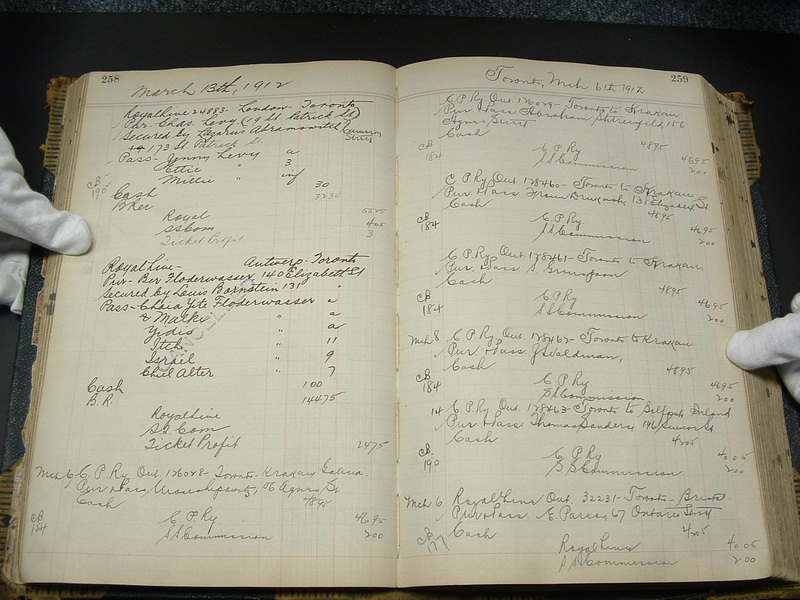 258
March 13th, 1912
Royal Line 24883- London- Toronto
Pur- Chas. Levy (19 St. Patrick St)
Secured by Lazarus Abramowitz
173 St. Patrick St.
Pass- Jenny Levy a
Ettie 3
Millie " inf
CB
190
Cash 30
Bker 3230
Royal 5525
SSCom 400
Ticket Profit 3
Royal Line- Antwerp- Toronto
Pur- Ber Floderwasser, 140 Elizabeth St
Secured by Louis Bornstein 131 "
Pass- Chaia Yite Floderwasser a
& Malke " a
Yidis " a
Itch " 11
Israel " 9
Chiel Alter " 7
CANCELLED
Cash 100
B.R. 14475
Royal Line
SS Com
Ticket Profit 2475
Mch 6 C.P.Ry Out. 176028- Toronto- Krakau Galicia.
Pur & Pass 06 Agnes St
Cash 4895
CB
184
C.P.Ry 4695
SS Commission 200
259
Toronto, Mch 6th 1912
C.P.Ry Out. 176029- Toronto to Krakau
Pur & Pass Abraham 156
Agnes Street
Cash 4895
CB
184
C.P.Ry 4695
SS Commission 200
C.P.Ry Out. 178460- Toronto to Krakau
Pur. & Pass 131 Elizabeth St
Cash 4895
CB
184
C.P.Ry 4695
SS Commission 200
C.P.Ry Out. 178461- Toronto to Krakau
Pur. & Pass S.
Cash 4895
CB
184
C.P.Ry 4695
SS Commission 200
Mch 8 C.P.Ry Out. 178462- Toronto to Krakau
Pur & Pass J. Waldman,
Cash 4895
CB
184
C.P.Ry 4695
SS Commission 200
14 C.P.Ry Out. 178463- Toronto to Belfast, Ireland
Pur & Pass Thomas Sanders, 196 St
Cash 4205
CB
190
C.P.Ry 4005
SS Commission 200
Mch 6 Royal Line Out. 32231- Toronto- Bristol
Pur & Pass. E. Parker, 67 Ontario St
Cash 4205
CB
177
Royal Line 4005
SS Commission 200